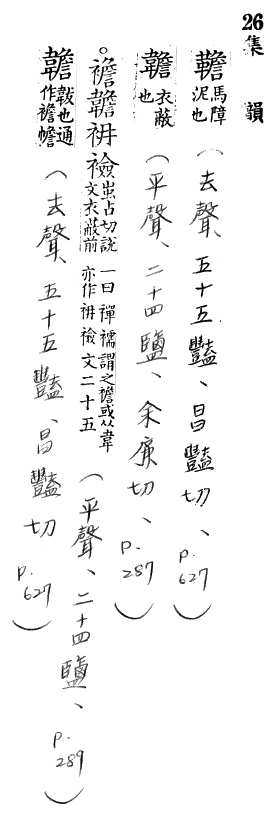 26 集韻
韂馬障泥也(去聲、五十五豔、昌豔切、p.627)
韂衣蔽也(平聲、二十四鹽、余廉切、p.287)
。襜韂袡襝蚩占切說文衣蔽前一曰襌襦謂之襜或从韋亦作袡襝文二十五(平聲、二十四鹽、p.289)
韂㪇也通作襜幨(去聲、五十五豔、昌豔切p.627)